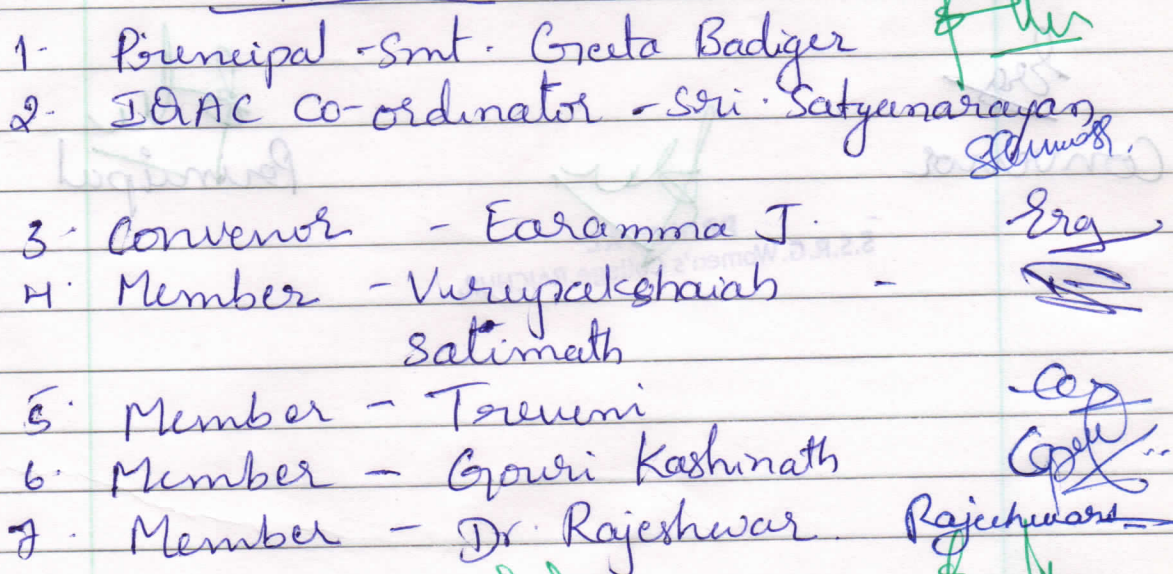 1- Principal - Smt. Geeta Badiger
2- IQAC Co-ordinator - Sri. Satyanarayan
3. Convenor - Earamma J. Era
4. Member - Virupakshaiah -
Satimath
5. Member - Triveni
6. Member - Gouri Kashinath
7. Member - Dr. Rajeshwar. Rajeshwari